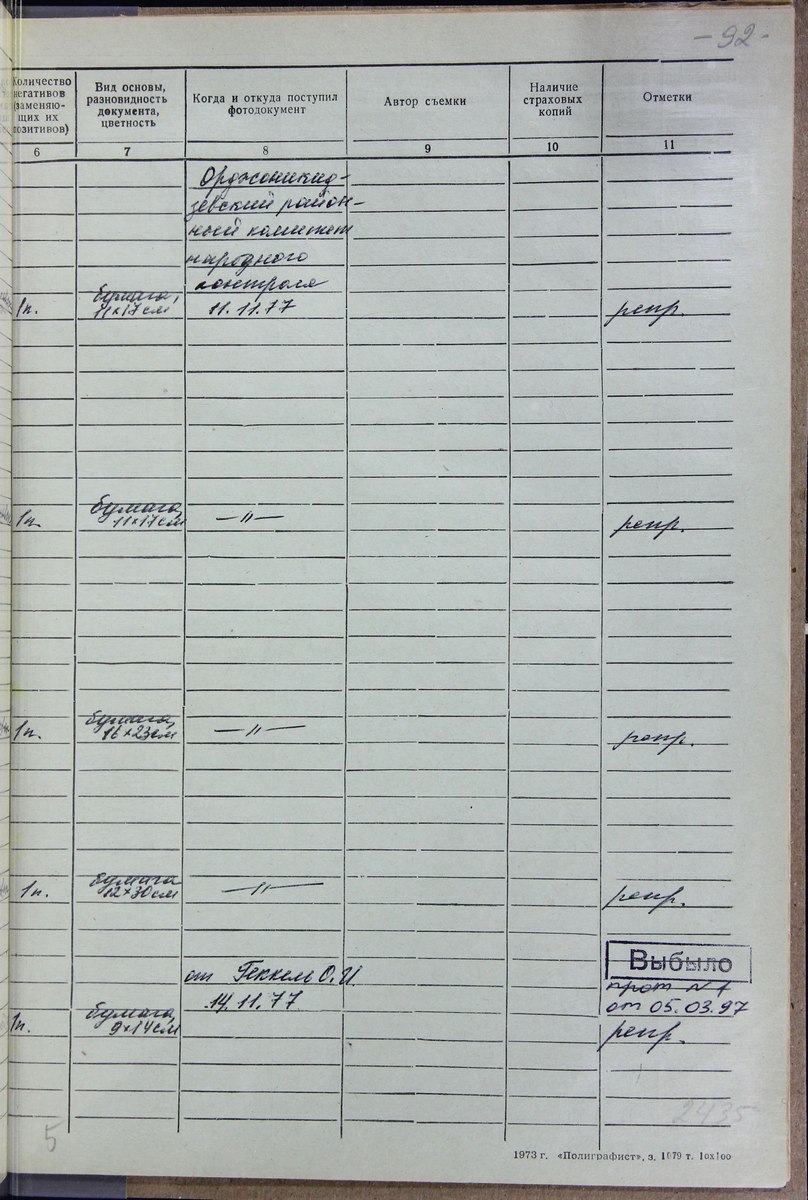 -92-
Количество негативов (заменяю-щих их позитивов)
Вид основы, разновидность документа, цветность
Когда и откуда поступил фотодокумент
Автор съемки
Наличие страховых копий
Отметки
6 7 8 9 10 11
Орджоникид-
зевский район-
ный комитет
народного
контроля
1п. бумага, 11×17 см 11.11.77 репр.
1п. бумага 11×17 см —"— репр.
1п. бумага, 16×23 см —"— репр.
1п. бумага 12×30 см —"— репр.
Выбыло
от Геккель О.И. прот N1
14.11.77 от 05.03.97
1п. бумага, 9×14 см репр.
2435
5
1973 г. «Полиграфист», з. 1079 т. 10х100